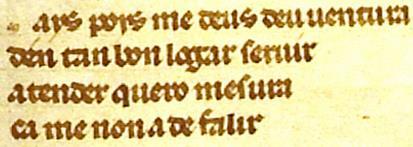 ays poys me deus deu uentura
den tan bon logar seruir
atender quero mesura
ca me non a de falir